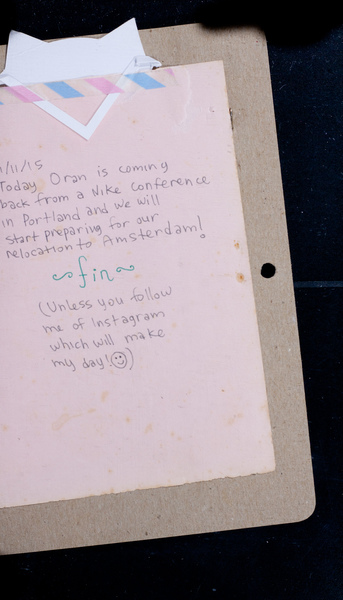 /11/15
Today Oran is coming
back from a Nike conference
in Portland and we will
start preparing for our
relocation to Amsterdam!
~fin~
(Unless you follow
me of instagram
which will make
my day!☺)